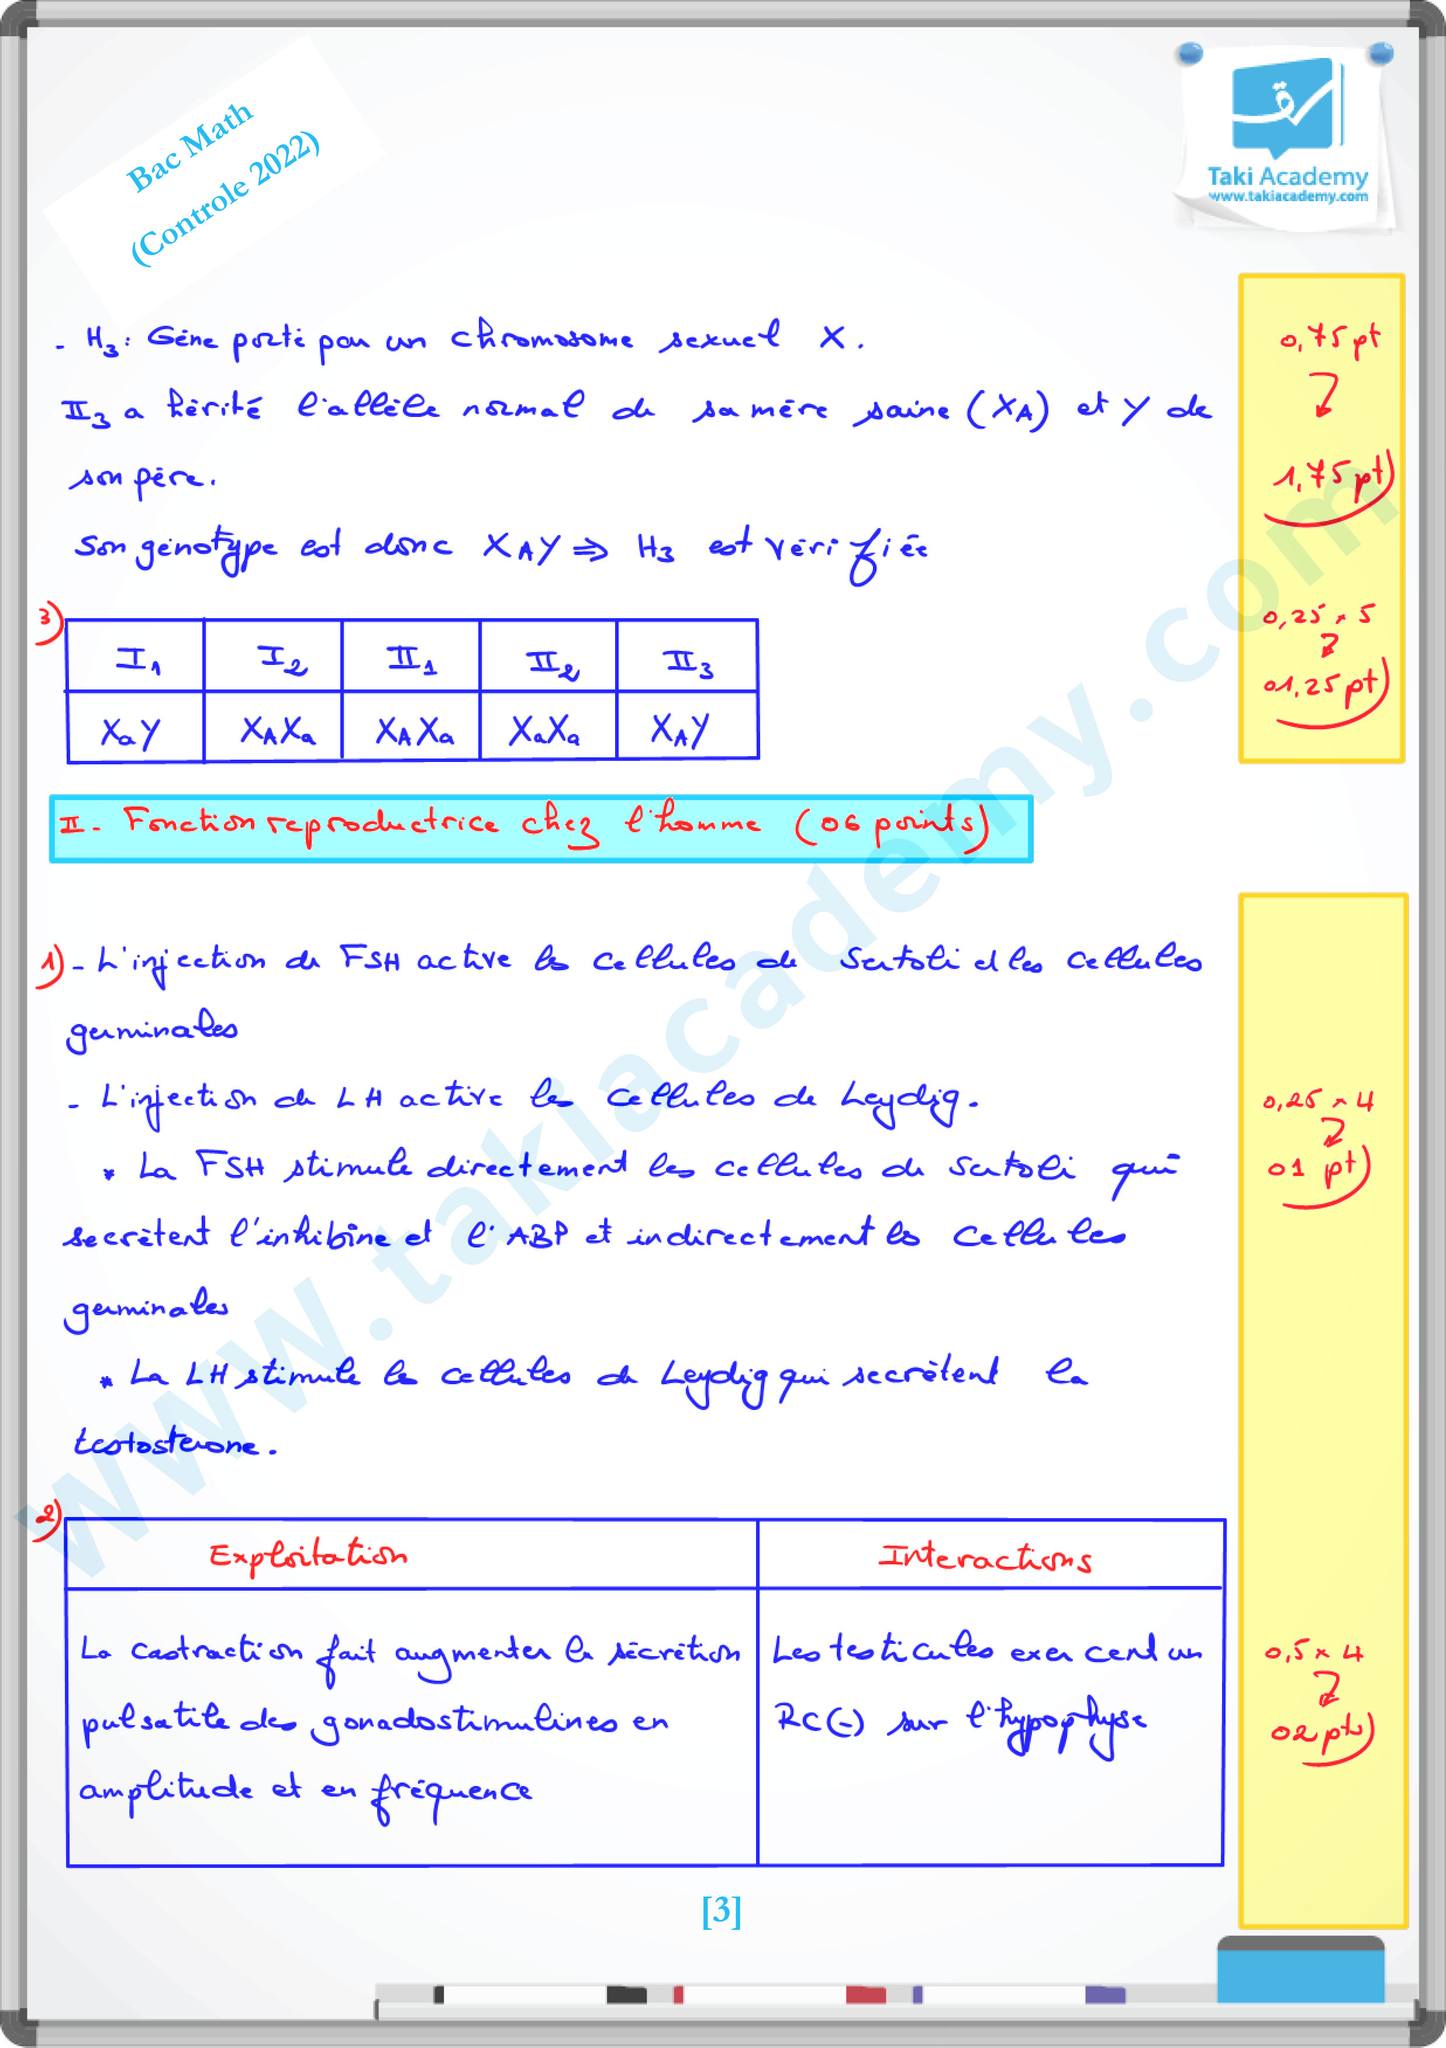 Bac Math
(Controle 2022)
Taki Academy
www.takiacademy.com
- H3: Gène porté par un chromosome sexuel X.
II3 a hérité l'allèle normal de sa mère saine (XA) et Y de
son père.
Son génotype est donc XAY ⇒ H3 est vérifiée
0,75 pt
1,75 pt)
3)
I1 I2 II1 II2 II3
XaY XAXa XAXa XaXa XAY
0,25 × 5
01,25 pt)
II - Fonction reproductrice chez l'homme (06 points)
1) - L'injection de FSH active les cellules de Sertoli et les cellules
germinales
- L'injection de LH active les cellules de Leydig.
* La FSH stimule directement les cellules de Sertoli qui
secrètent l'inhibine et l'ABP et indirectement les cellules
germinales
* La LH stimule les cellules de Leydig qui secrètent la
testosterone.
0,25 × 4
01 pt)
2)
Exploitation Interactions
La castraction fait augmenter la sécrétion
pulsatile des gonadostimulines en
amplitude et en fréquence
Les testicules exercent un
RC(-) sur l'hypophyse
0,5 × 4
02 pts)
[3]
www.takiacademy.com